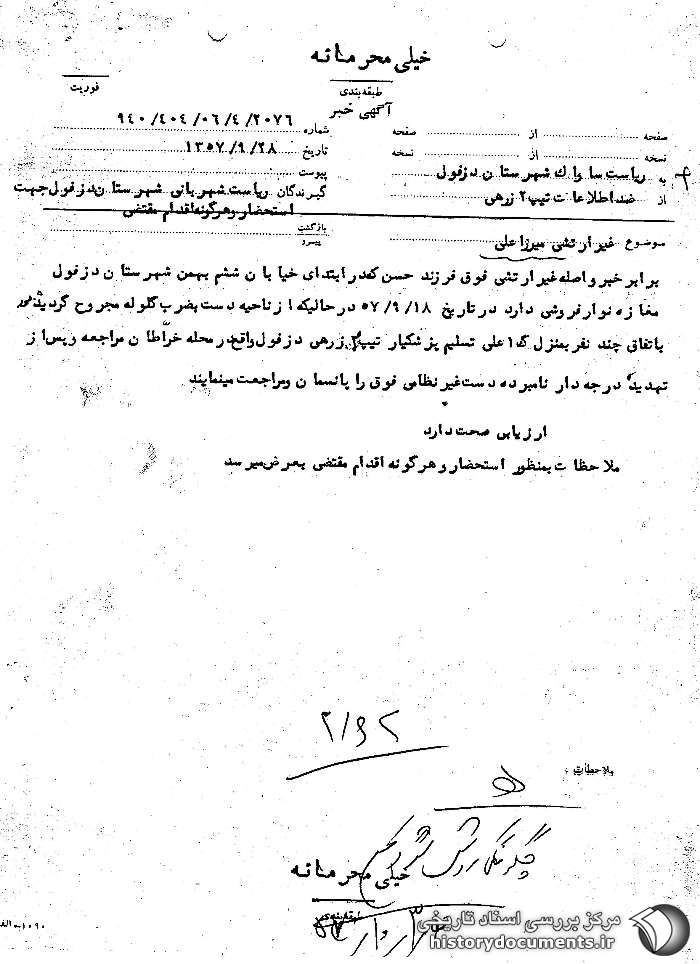 خیلی محرمانه
طبقه‌بندی
فوریت
آگهی خبر
شماره ۲۰۷۶/۴/۰۶/۴۰۴/۹۴۰
صفحه از صفحه
تاریخ ۲۸/۹/۱۳۵۷
نسخه از نسخه
پیوست
به ریاست ساواک شهرستان دزفول
گیرندگان ریاست شهربانی شهرستان دزفول جهت
استحضار و هرگونه اقدام مقتضی
از ضد اطلاعات تیپ ۲ زرهی
بازگشت
پیرو
موضوع غیر ارتشی میرزا علی
برابر خبر واصله غیر ارتشی فوق فرزند حسن که در ابتدای خیابان ششم بهمن شهرستان دزفول
مغازه نوار فروشی دارد در تاریخ ۱۸/۹/۵۷ در حالیکه از ناحیه دست بضرب گلوله مجروح گردیده بود
باتفاق چند نفر بمنزل ک۱ علی تسلیم پزشکیار تیپ ۲ زرهی دزفول واقع در محله خراطان مراجعه و پس از
تهدید درجه دار نامبرده دست غیر نظامی فوق را پانسمان و مراجعت مینمایند
ارزیابی صحت دارد
ملاحظات بمنظور استحضار و هرگونه اقدام مقتضی بعرض میرسد
ملاحظات :
خیلی محرمانه
طبقه‌بندی
مرکز بررسی اسناد تاریخی
historydocuments.ir